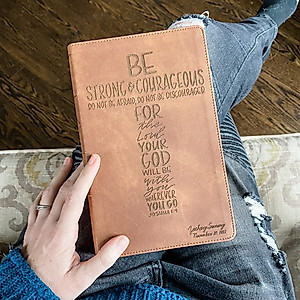 BE
STRONG & COURAGEOUS
DO NOT BE AFRAID, DO NOT BE DISCOURAGED
FOR
the
Lord
YOUR
GOD
WILL BE
with
you
WHEREVER
YOU GO
JOSHUA 1:9
November